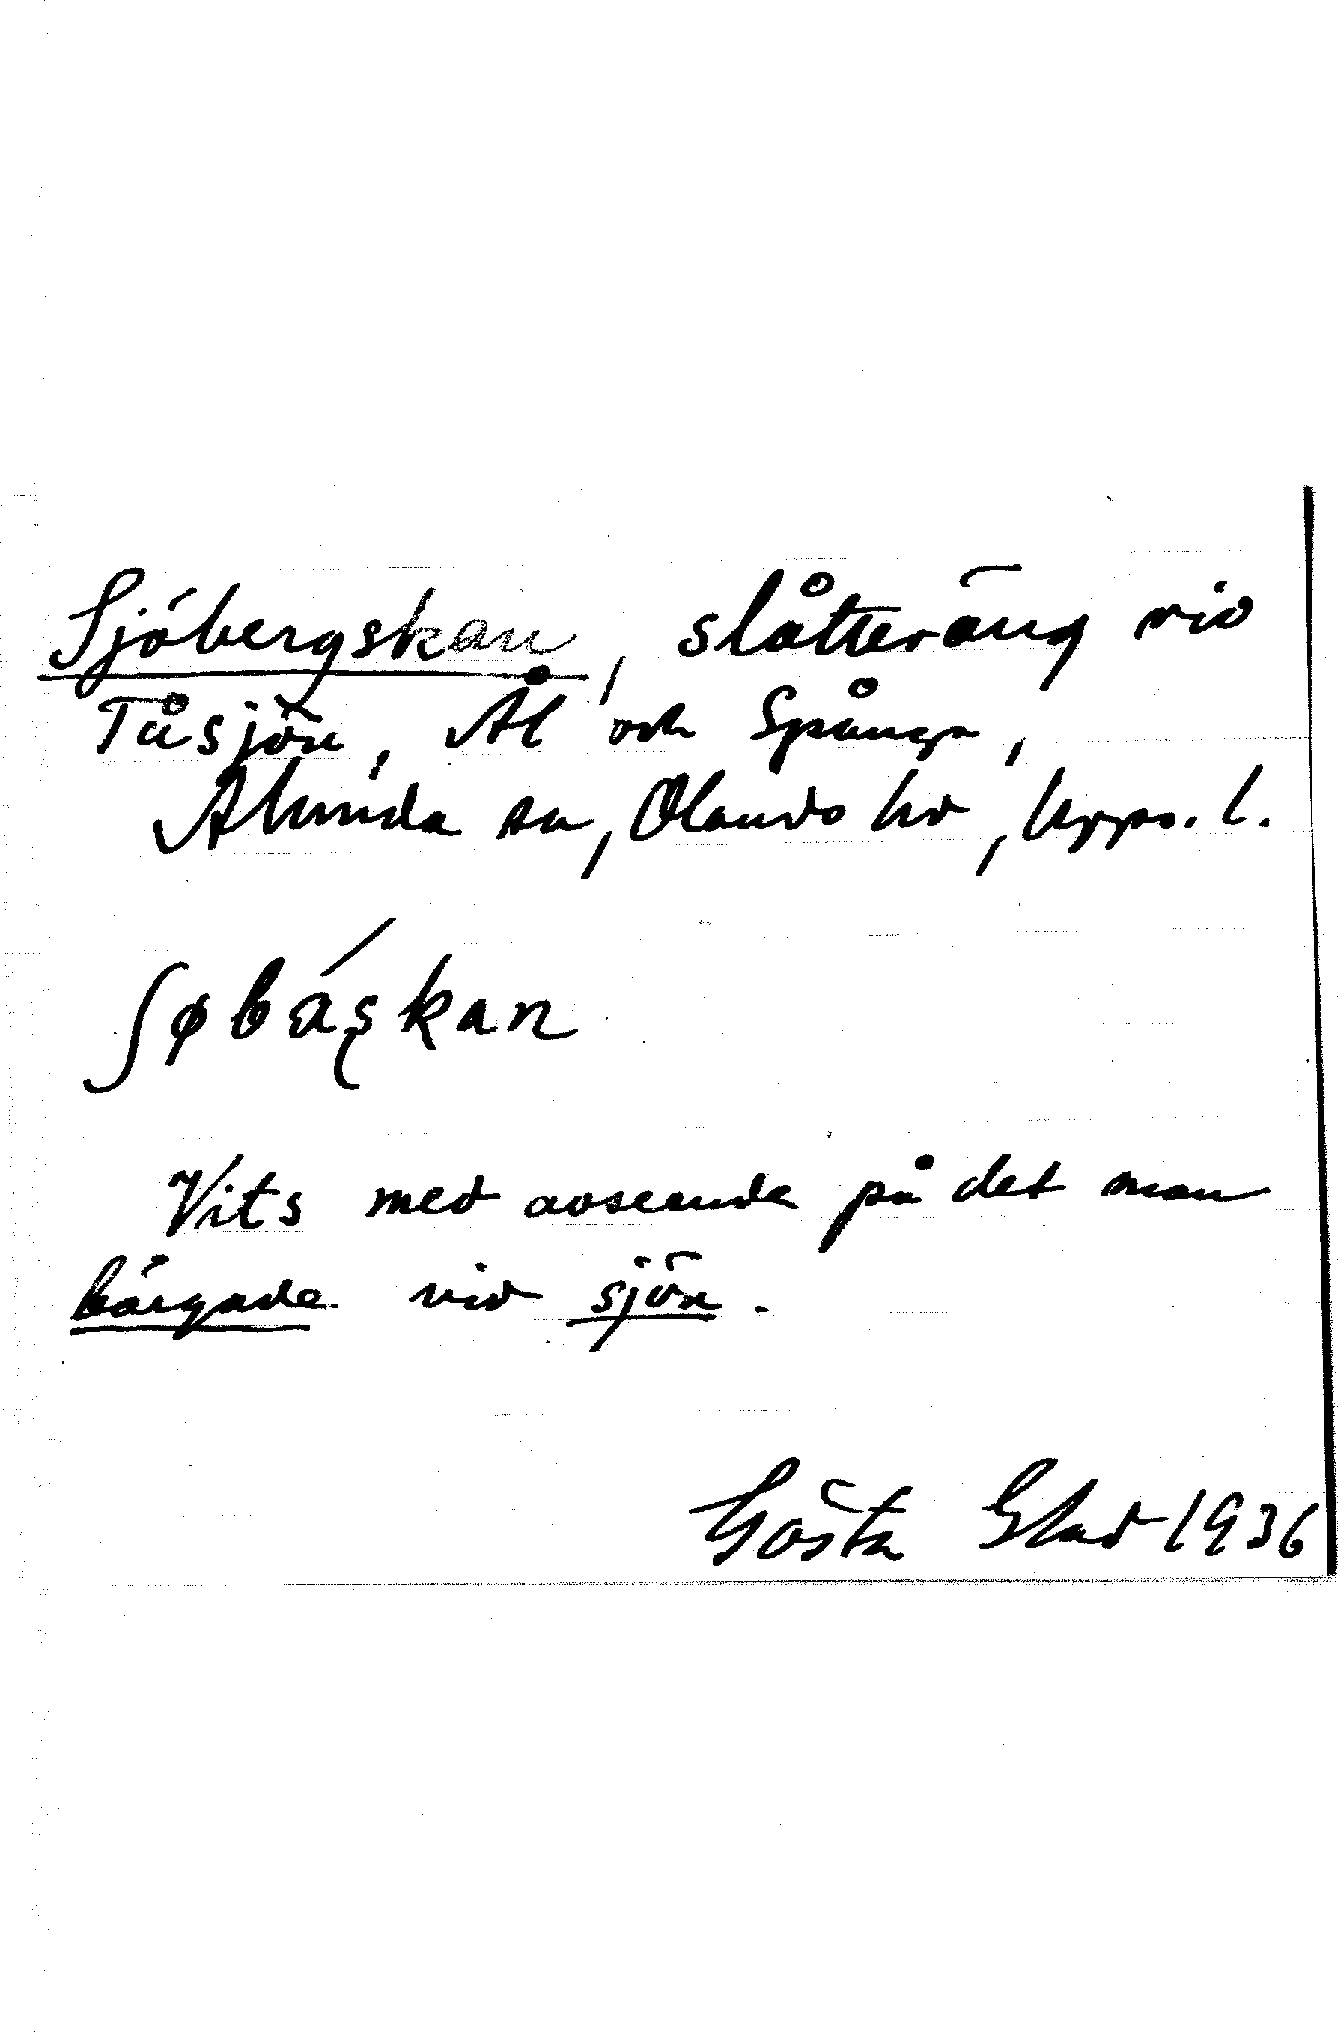 Sjöbergskan, slåtteräng vid
Tåsjön, Ål och Spånga,
Alunda sn, Olands hd, Upps. l.
ʃøbáʂkan
Vits med avseende på det man
bärgade vid sjön.
Gösta Glad 1936